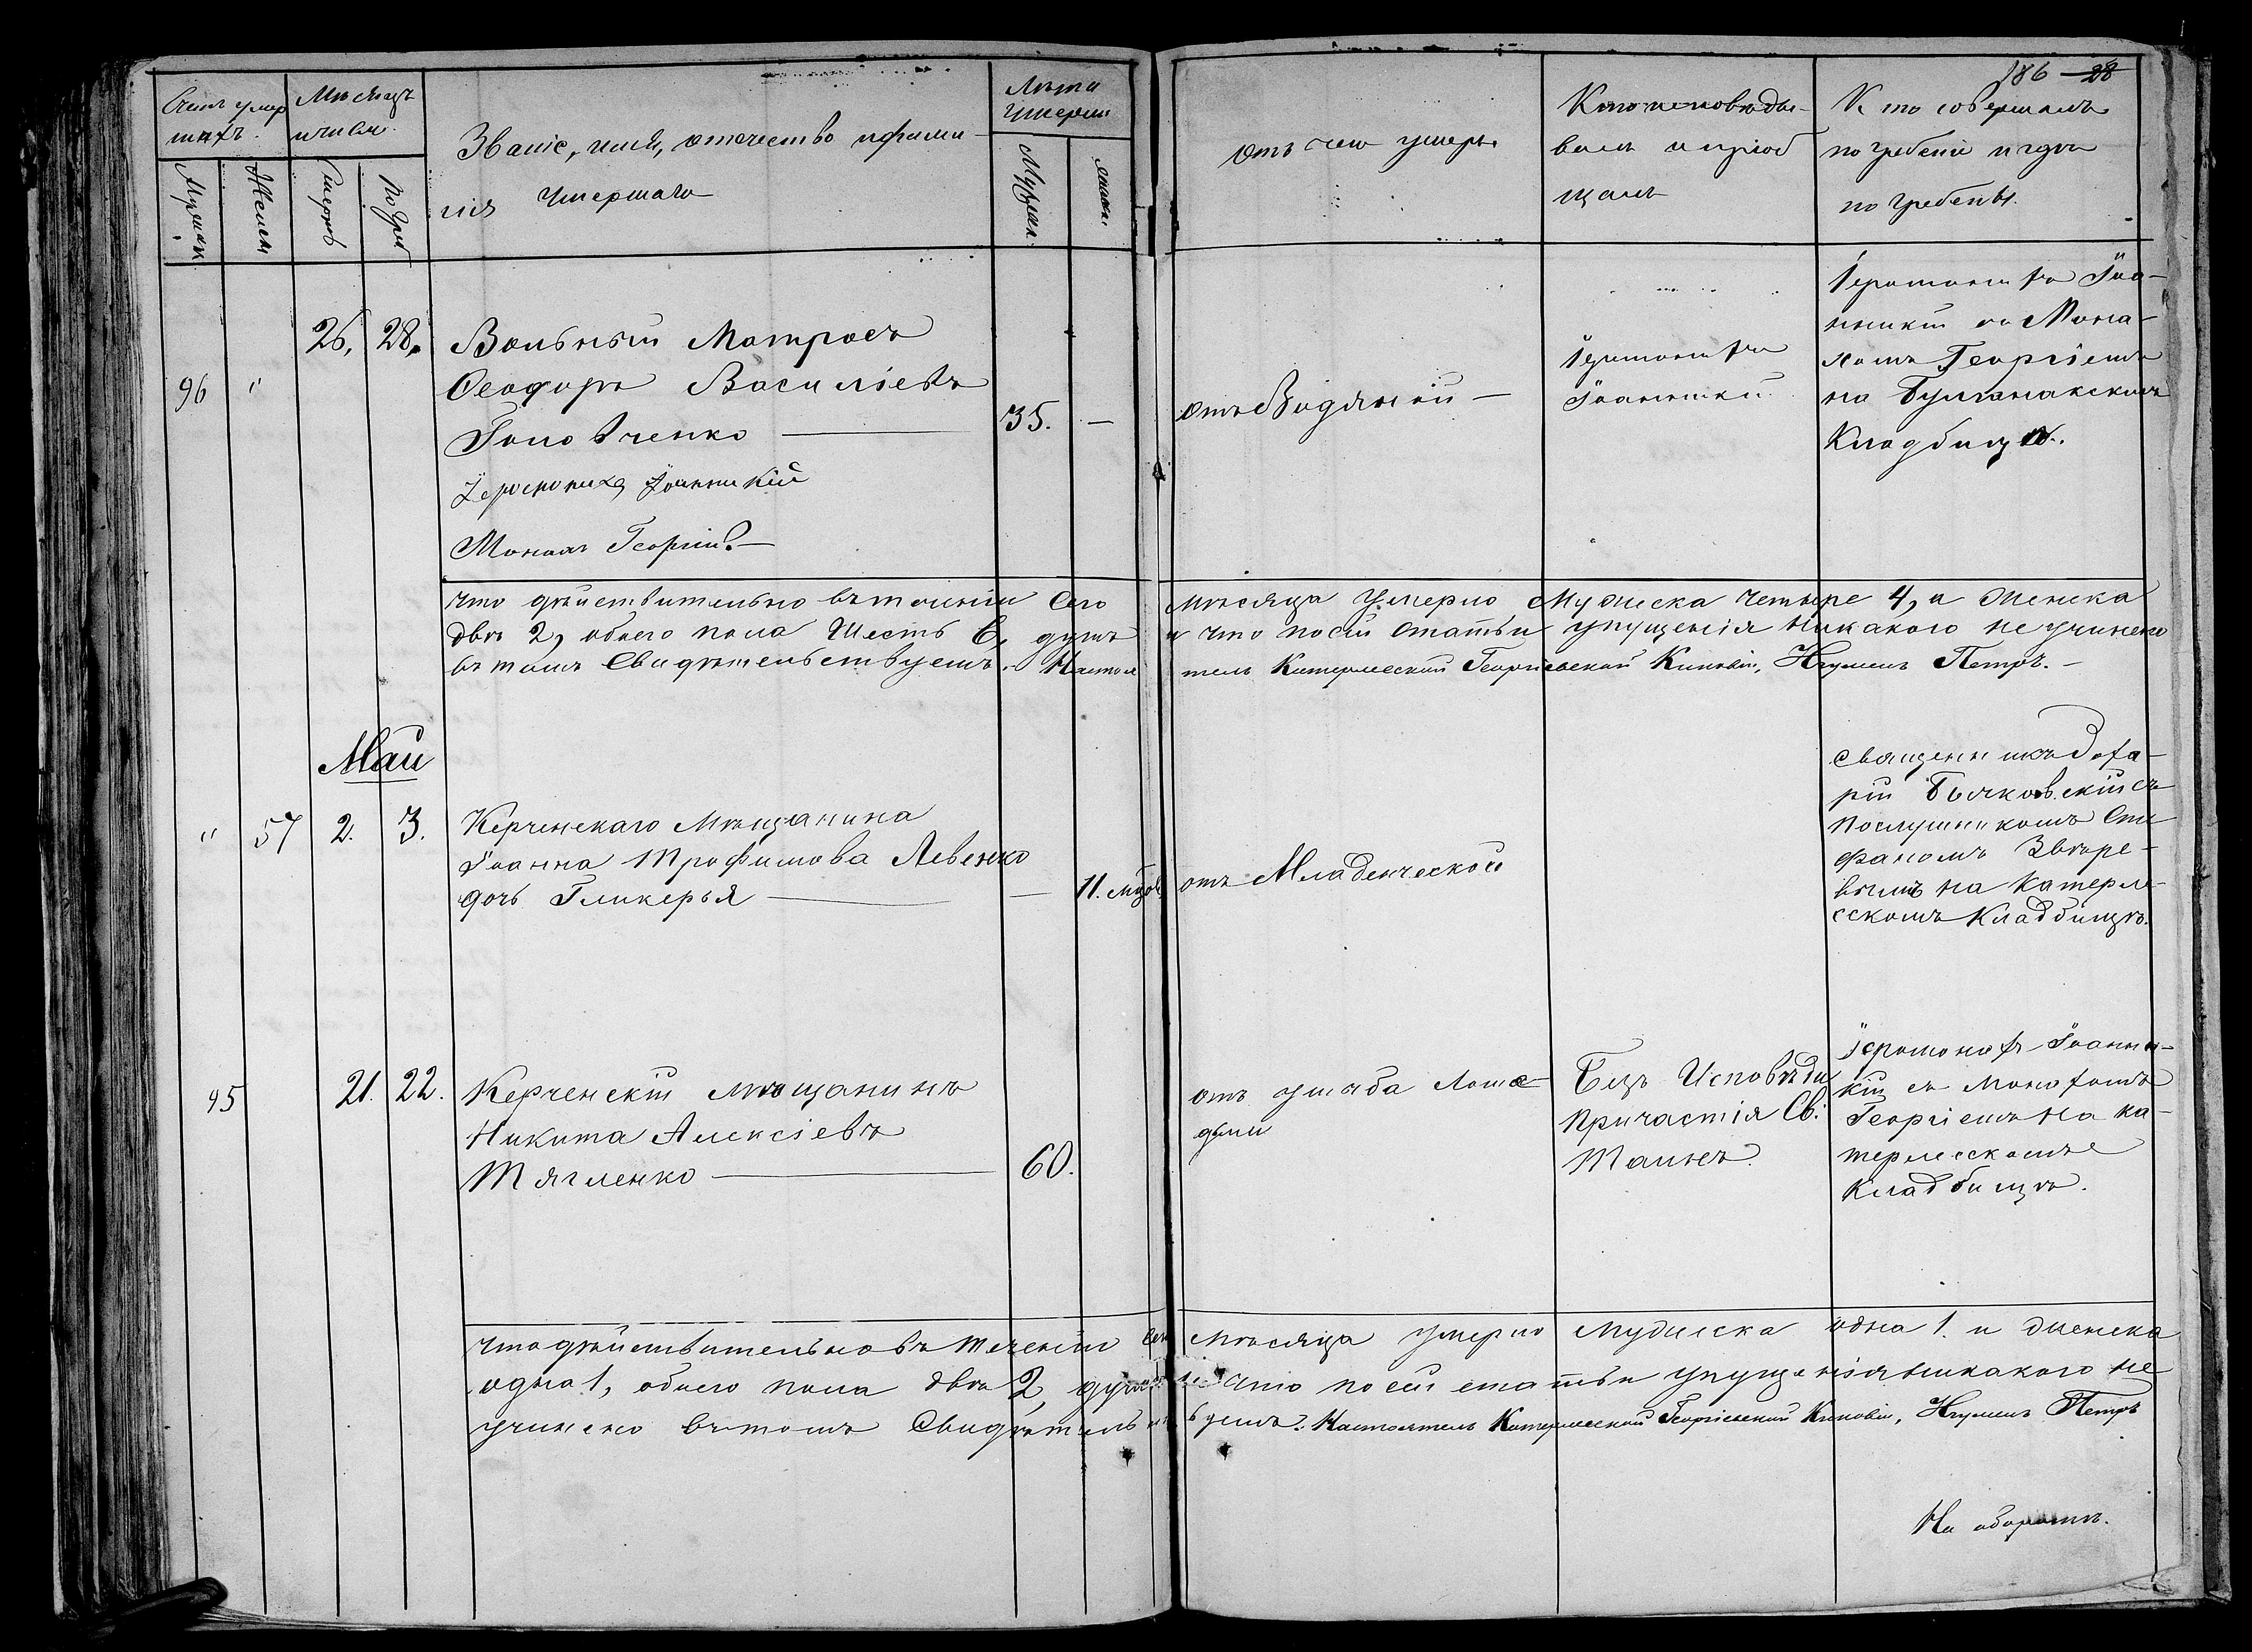 186 28
Счетъ умер
шихъ.
Мѣсяцъ
и числа.
Званіе, имя, отчество и фами-
лія умершаго
Лѣта
умерш
Отъ чего умеръ.
Кто исповѣды-
валъ и пріоб
щалъ
Кто совершалъ
погребеніе и гдѣ
погребены.
Мужеск
Женск
Смерть
Погреб
Мужеска
женска
96 " 26, 28,
Вольный Матросъ
Ѳеодоръ Василіевъ
Головченко — 35. —
Іеромонахъ Іоанникій
Монахъ Георгій. —
отъ Водяной —
Іеромонахъ
Іоанникій
Іеромонахъ Іоа-
нникій съ Мона-
хомъ Георгіемъ
на Булганакскомъ
Кладбищѣ.
Что дѣйствительно въ теченіи сего мѣсяца умерло мужеска четыре 4, и женска
двѣ 2, обоего пола шесть 6, душъ и что по сей статьи упущенія никакого не учинено
въ томъ свидѣтельствуемъ. Настоятель Катерлесской Георгіевской Киновіи, Игуменъ Петръ. —
Май
" 57 2. 3.
Керченскаго Мѣщанина
Іоанна Трофимова Левенко
дочь Гликерья — — 11. мѣся
отъ Младенческой
Священникъ Заха-
рій Бычковскій съ
послушникомъ Сте
фаномъ Звѣре-
вымъ на Катерле-
сскомъ Кладбищѣ.
45 21. 22.
Керченскій мѣщанинъ
Никита Алексіевъ
Тягленко — 60.
отъ ушиба Лоша-
дьми
Безъ Исповѣди
Причастія Св:
Таинъ.
Іеромонахъ Іоанни-
кій съ Монахомъ
Георгіемъ на Ка-
терлесскомъ
Кладбищѣ.
Что дѣйствительно въ теченіи сего мѣсяца умерло мужеска одна 1. и женска
одна 1, обоего пола двѣ 2, душъ и что по сей статьи упущенія никакого не
учинено въ томъ Свидѣтельствуемъ. Настоятель Катерлесской Георгіевской Киновіи, Игуменъ Петръ
На оборотѣ.